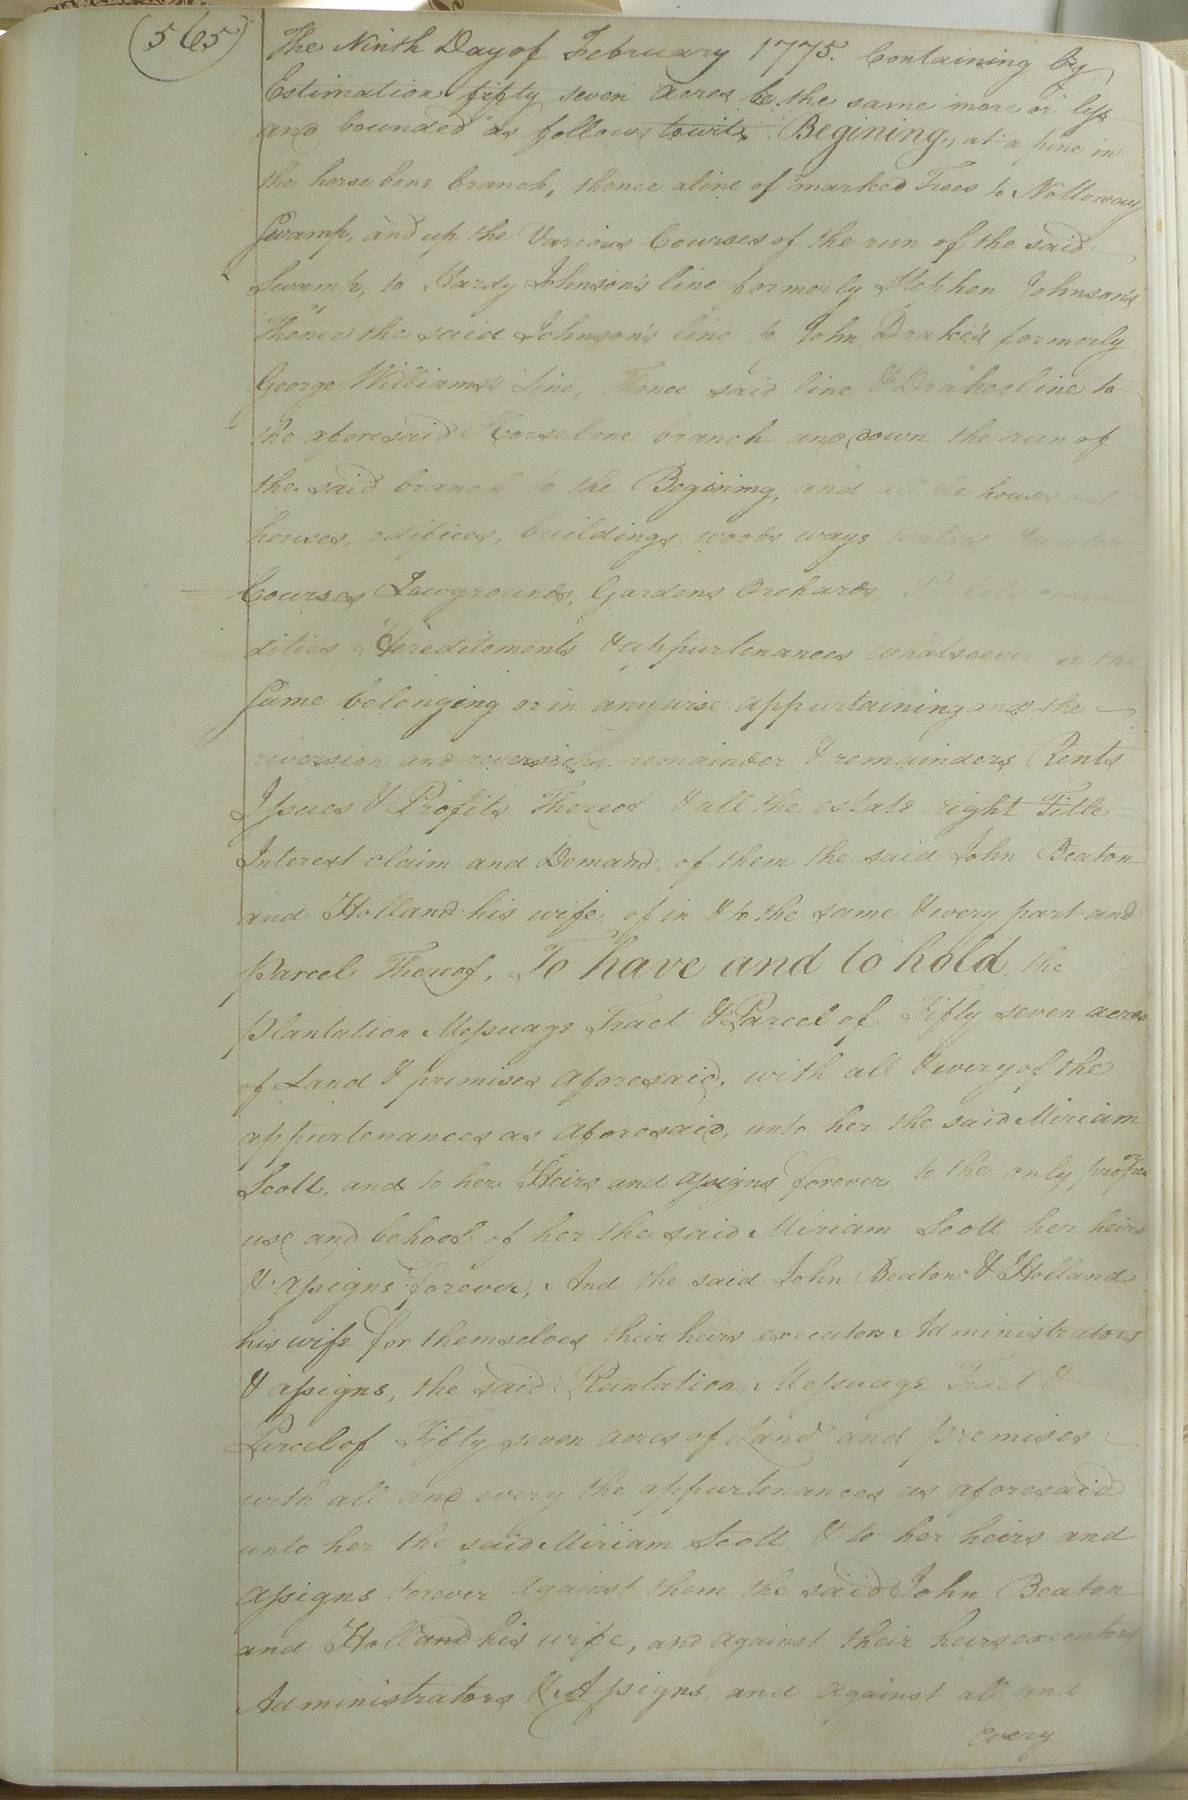 (565)
The Ninth Day of February 1775. Containing by
Estimation fifty seven acres be the same more or less
and bounded as follows towit, Begining, at a pine in
the horse bone branch, thence a line of marked Trees to Nottoway
Swamp, and up the Various Courses of the run of the said
Swamp, to Hardy Johnson's line formerly Stephen Johnson's
Thence the said Johnson's line to John Drake's formerly
George Williams's Line, Thence said line & Drakes line to
the aforesaid Horsebone branch and down the run of
the said branch to the Begining, and all the houses out
houses, edifices, buildings, woods ways waters, & water
Courses Lowgrounds, Gardens Orchards, Profits commo
dities Hereditements & appurtenances whatsoever to the
Same belonging or in any wise appurtaining and the
reversion and reversions remainder & remainders Rents
Issues & Profits Thereof & all the estate right Title
Interest claim and Demand, of them the said John Beaton
and Holland his wife, of in & to the same & every part and
Parcel Thereof, To have and to hold the
Plantation Messuage Tract & Parcel of Fifty seven acres
of Land & premises aforesaid, with all & every of the
appurtenances as aforesaid, unto her the said Miriam
Scott, and to her Heirs and assigns forever to the only proper
use and behoof of her the said Miriam Scott her heirs
& assigns forever, And the said John Beaton & Holland
his wife for themselves their heirs executors Administrators
& assigns, the said Plantation Messuage Tract &
Parcel of Fifty seven acres of Land and premises
with all and every the appurtenances as aforesaid
unto her the said Miriam Scott, & to her heirs and
assigns forever against them the said John Beaton
and Holland his wife, and against their heirs executors
Administrators & Assigns, and against all and
every